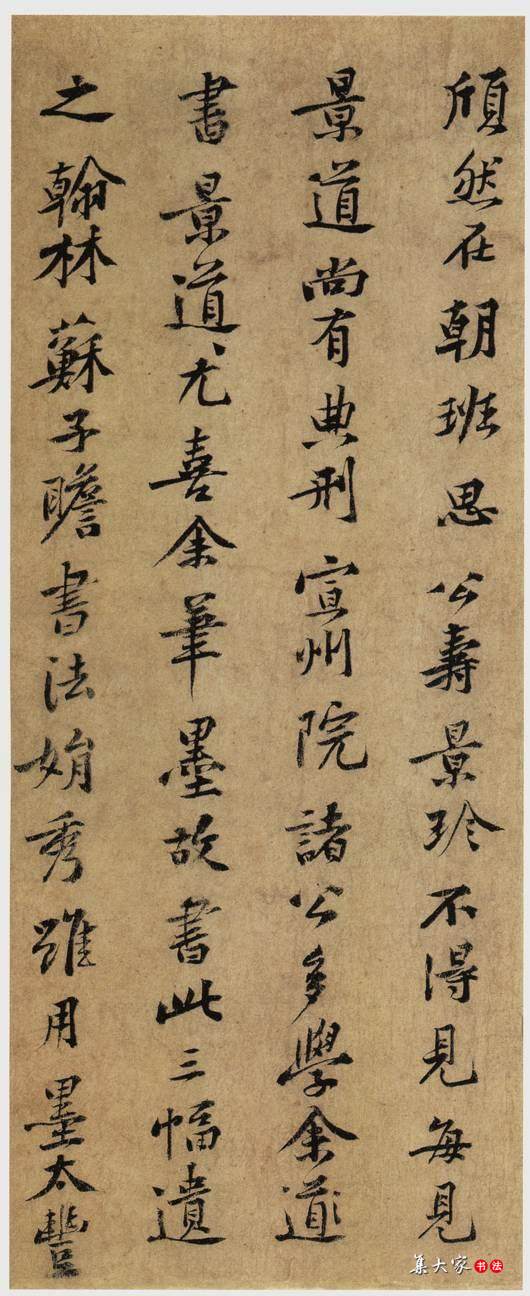 頎然在朝班思公壽景珍不得見每見
景道尚有典刑宣州院諸公多學余道
書景道尤喜余筆墨故書此三幅遺
之翰林蘇子瞻書法娟秀雖用墨太豐
集大家书法